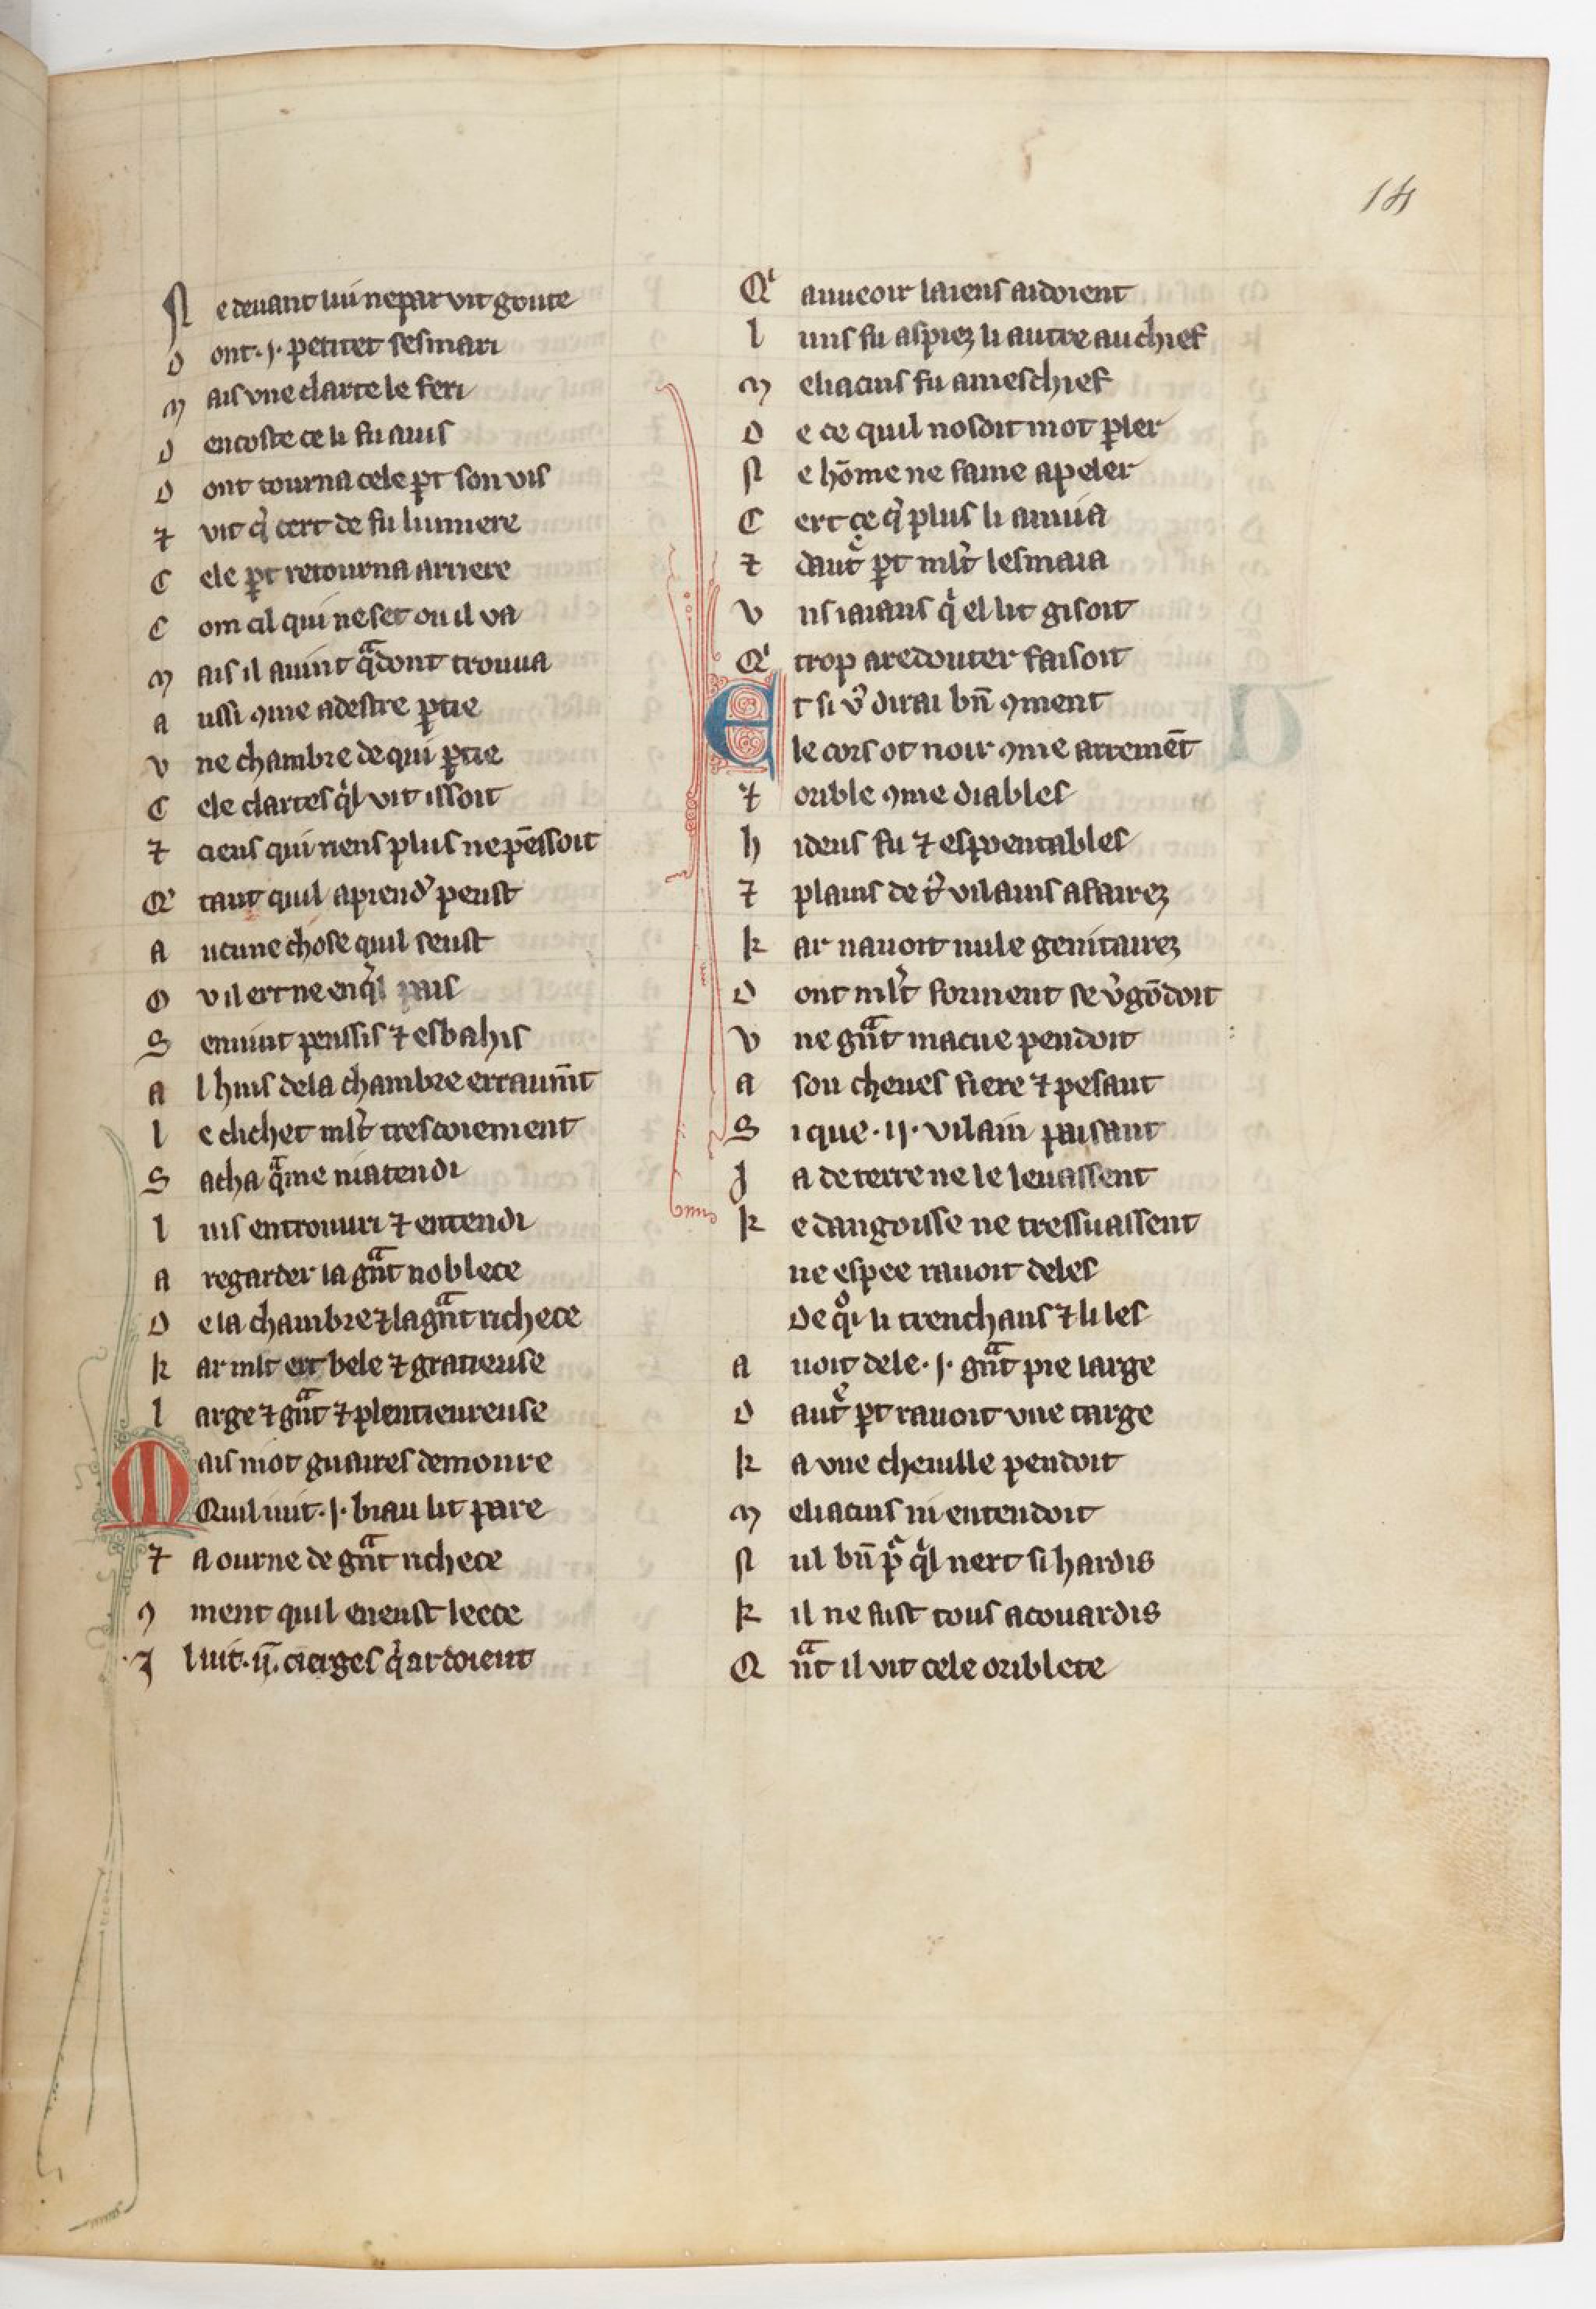 14
N e deuant lui ne par vit goute
D ont .j. petitet sesmari
M ais vne clarte le feri
D encoste ce li fu auis
D ont tourna cele ꝑt son vis
⁊ vit qͥ cert de fu lumiere
C ele ꝑt retourna arriere
C om cil qui ne set ou il va
M ais il auint qͣdont trouua
A ussi ꝯme a destre ꝑtie
V ne chambre de qui ꝑtie
C ele clartes qͥl vit issoit
⁊ ciens qui riens plus ne pēssoit
Qͥ tant quil aprendˀ peust
A ucune chose quil seust
O v il ert ne en qͥl pais
S en uint penssis ⁊ esbahis
A l huis de la chambre erraumt̄
L e clichet ml̓t tres coiement
S acha qͣme ni atendi
L uis entrouuri ⁊ entendi
A regarder la gnͣt noblece
D e la chambre ⁊ la gnͣt richece
K ar mlt ert bele ⁊ gratieuse
L arge ⁊ gnͣt ⁊ plentieureuse
M ais niot guaires demoure
Quil uit .j. biau lit pare
⁊ a ourne de gnͣt richece
ꝯ ment quil en eust leece
I l uit .ij. cierges qͥ ardoient
Qͥ a uueoir laiens aidoient
L uns fu as piez li autre au chief
M eliacins fu a meschief
D e ce quil nosoit mot ꝑler
N e hōme ne fame apeler
C ert ce qͥ plus li anuia
⁊ dautͤ ꝑt ml̓t lesmaia
V ns iaians qͥ el lit gisoit
Qͥ trop a redouter faisoit
E t si vˀ dirai bn̄ ꝯment
le cors ot noir ꝯme arremēt
⁊ orible ꝯme diables
H ideus fu ⁊ espoentables
⁊ plains de tˀ vilains afairez
K ar nauoit nule genitairez
D ont ml̓t forment se vˀgōdoit
V ne gnͣt macue pendoit
A son cheues fiere ⁊ pesant
S i que .ij. vilain paisant
J a de terre ne le leuassent
K e dangoisse ne tressuassent
ne espee rauoit deles
De qͦi li trenchans ⁊ li les
A uoit dele .j. gnͣt pie large
D autͤ ꝑt rauoit vne targe
K a vne cheuille pendoit
M eliacins ni entendoit
N ul bn̄ pͬ qͥl nert si hardis
K il ne fust tous acouardis
Q nͣt il vit cele oriblete